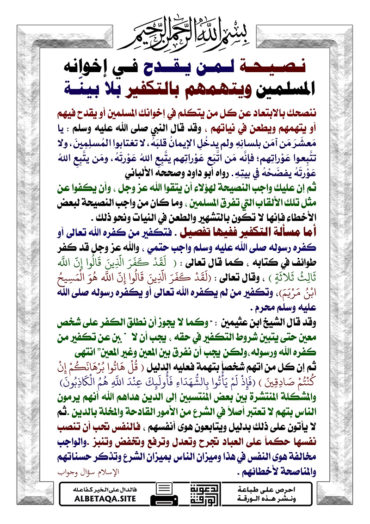 بسم الله الرحمن الرحيم
نـصـيـحـة لـمـن يـقـدح فـي إخوانه
المسلمين ويتهمهم بالتكفير بلا بينة
ننصحك بالابتعاد عن كل من يتكلم في إخوانك المسلمين أو يقدح فيهم
أو يتهمهم ويطعن في نياتهم ، وقد قال النبي صلى الله عليه وسلم : يا
معشرَ مَن آمن بلسانِهِ ولم يدخُلِ الإيمانُ قلبَهُ ، لا تغتابوا المُسلِمينَ ، ولا
تتَّبعوا عَوْراتِهم؛ فإنَّه مَن اتَّبَع عَوْراتِهم يتَّبِعِ اللهُ عَوْرتَهُ، ومَن يتَّبِعِ اللهُ
عَوْرتَهُ يفضَحْهُ في بيتِهِ . رواه أبو داود وصححه الألباني
ثم إن عليك واجب النصيحة لهؤلاء أن يتقوا الله عز وجل ، وأن يكفوا عن
مثل تلك الألقاب التي تفرق المسلمين ، وما كان من واجب النصيحة لبعض
الأخطاء فإنها لا تكون بالتشهير والطعن في النيات ونحو ذلك .
أما مسألة التكفير ففيها تفصيل . فتكفير من كفره الله تعالى أو
كفره رسوله صلى الله عليه وسلم واجب حتمي ، والله عز وجل قد كفر
طوائف في كتابه ، كما قال تعالى : ( لَّقَدْ كَفَرَ الَّذِينَ قَالُوا إِنَّ اللَّهَ
ثَالِثُ ثَلَاثَةٍ ) ، وقال تعالى : (لَّقَدْ كَفَرَ الَّذِينَ قَالُوا إِنَّ اللَّهَ هُوَ الْمَسِيحُ
ابْنُ مَرْيَمَ)، وتكفير من لم يكفره الله تعالى أو يكفره رسوله صلى الله
عليه وسلم محرم .
وقد قال الشيخ ابن عثيمين : "وكما لا يجوز أن نطلق الكفر على شخص
معين حتى يتبين شروط التكفير في حقه ، يجب أن لا نجبن عن تكفير من
كفره الله ورسوله .ولكن يجب أن نفرق بين المعين وغير المعين" انتهى
ثم إن كل من اتهم شخصاً بتهمة فعليه الدليل ( قُلْ هَاتُوا بُرْهَانَكُمْ إِنْ
كُنْتُمْ صَادِقِينَ ) (فَإِذْ لَمْ يَأْتُوا بِالشُّهَدَاءِ فَأُولَٰئِكَ عِنْدَ اللَّهِ هُمُ الْكَاذِبُونَ)
والمشكلة المنتشرة بين بعض المنتسبين إلى الدين هداهم الله أنهم يرمون
الناس بتهم لا تعتبر أصلاً في الشرع من الأمور القادحة والمخلة بالدين .ثم
لا يأتون على ذلك بدليل ويتابعون هوى أنفسهم ، فالنفس تحب أن تنصب
نفسها حكماً على العباد تجرح وتعدل وترفع وتخفض وتنبز .والواجب
مخالفة هوى النفس في هذا وميزان الناس بميزان الشرع وتذكر حسناتهم
والمناصحة لأخطائهم .
الإسلام سؤال وجواب
احرص على طباعة
ونشر هذه الورقة
الورقة
الدعوية
فالدال على الخير كفاعله
ALBETAQA.SITE